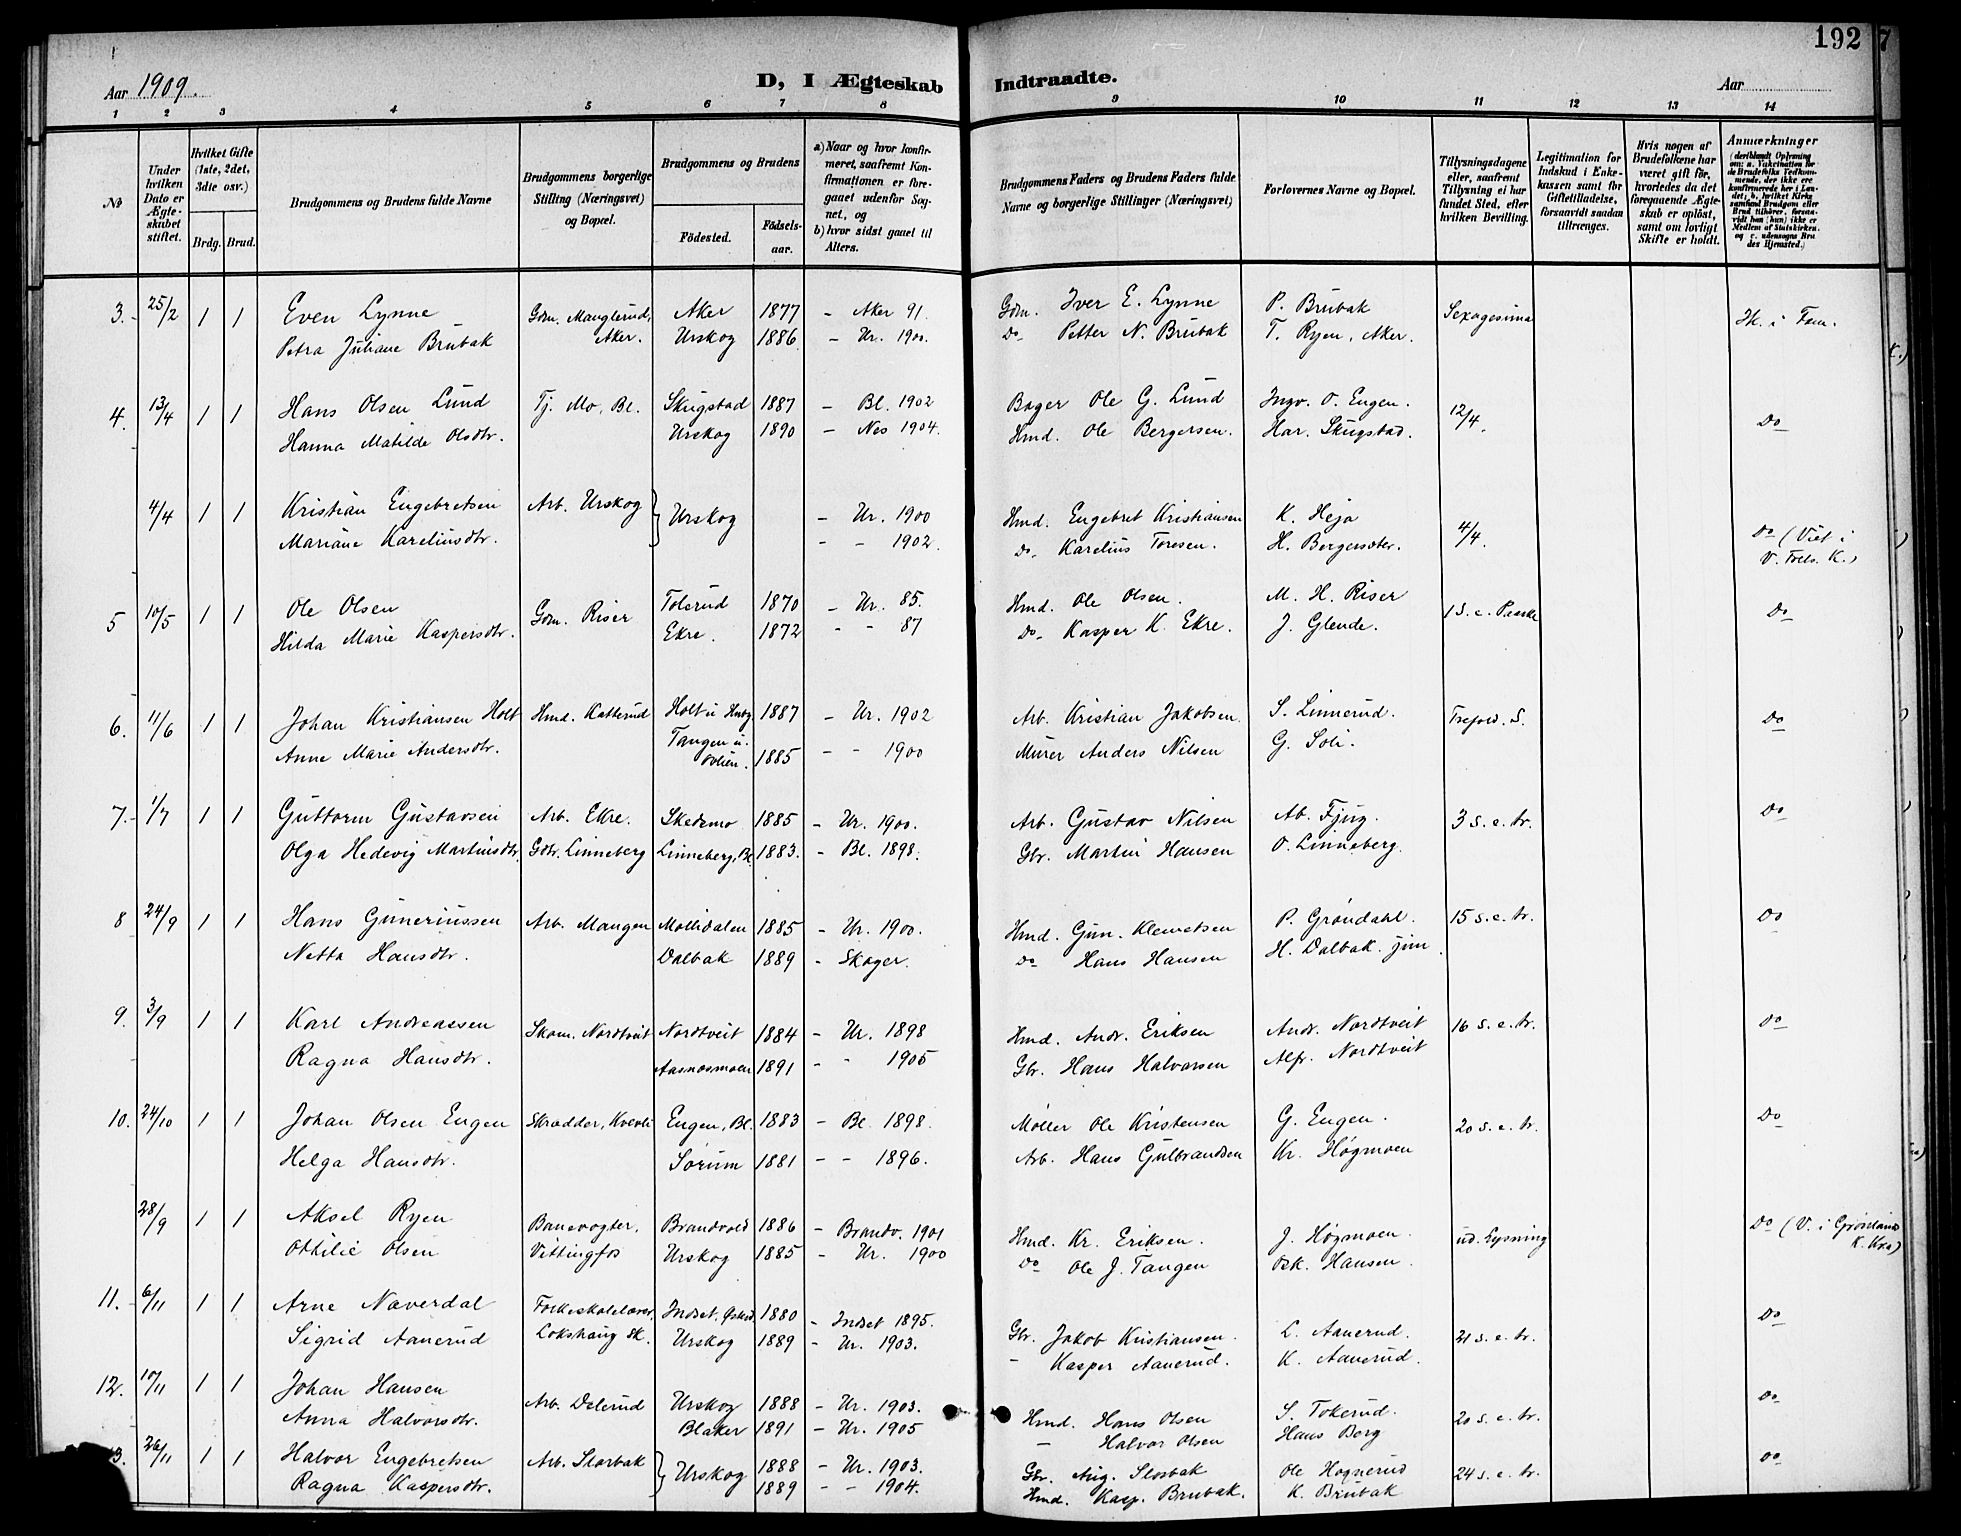 192
7
Aar 1909.
D, I Ægteskab Indtraadte.
Aar
1 2 3 4 5 6 7 8 9 10 11 12 13 14
No
Under hvilken Dato er Ægteskabet stiftet.
Hvilket Gifte (1ste, 2det, 3dte osv.)
Brdg. Brud.
Brudgommens og Brudens fulde Navne
Brudgommens borgerlige Stilling (Næringsvei) og Bopæl.
Brudgommens og Brudens
Födested.
Födsels-aar.
a) Naar og hvor konfirmeret, saafremt Konfirmationen er foregaaet udenfor Sognet, og
b) hvor sidst gaaet til Alters.
Brudgommens Faders og Brudens Faders fulde Navne og borgerlige Stillinger (Næringsvei)
Forlovernes Navne og Bopæl.
Tillysningsdagene eller, saafremt Tillysning ei har fundet Sted, efter hvilken Bevilling.
Legitimation for Indskud i Enkekassen samt for Giftetilladelse, forsaavidt saadan tiltrænges.
Hvis nogen af Brudefolkene har været gift før, hvorledes da det foregaaende Ægteskab er oplöst, samt om lovligt Skifte er holdt.
Anmærkninger (deriblandt Oplysning om: a. Vakcination for de Brudefolks Vedkommende, der ikke ere konfirmerede her i Landet; b. hvilket Kirkesamfund Brudgom eller Brud tilhører, forsaavidt han (hun) ikke er Medlem af Statskirken, og c. udensogns Brudes Hjemsted.)
3. 25/2 1 1 Even Lynne Gdm. Manglerud, Aker 1877 - Aker 91. Gdm. Iver E. Lynne P. Brubak Sexagesima Hk. i Fem.
Petra Juliane Brubak Aker. Urskog 1886 - Ur. 1900. Do Petter N. Brubak T. Ryen, Aker.
4. 13/4 1 1 Hans Olsen Lund Tj. Mo, Bl. Skugstad 1887 - Bl. 1902 Bager Ole G. Lund Ingv. O. Engen. 12/4. Do
Hanna Matilde Olsdtr. Urskog 1890 - Nes 1904. Hmd. Ole Bergersen. Har. Skugstad.
4/4 1 1 Kristian Engebretsen Arb. Urskog } Urskog - Ur. 1900 Hmd. Engebret Kristiansen K. Heja 4/4. Do (Viet i
Mariane Kareliusdtr. - - 1902. Do. Karelius Toresen. H. Bergersæter. V. Frels. K.)
5 10/5 1 1 Ole Olsen Gdm. Riser Tolerud 1870 - Ur. 85. Hmd. Ole Olsen. M. H. Riser 1 S. e. Paaske Do
Hilda Marie Kaspersdtr. Ekre. 1872 - - 87 Do. Kasper K. Ekre. J. Glende.
6. 11/6 1 1 Johan Kristiansen Holt Hmd. Katterud Holt u. 1887 - Ur. 1902 Arb. Kristian Jakobsen. S. Linnerud. Trefold. S. Do
Anne Marie Andersdtr. Tangen u. 1885 - - 1900 Murer Anders Nilsen G. Soli.
7. 1/7 1 1 Guttorm Gustavsen Arb. Ekre. Skedsmo 1885 - Ur. 1900. Arb. Gustav Nilsen Ab. Fjug. 3 S. e. tr. Do
Olga Hedevig Martinsdtr. Gdtr. Linneberg Linneberg, Bl. 1883. - Bl. 1898. Gbr. Martin Hansen O. Linneberg.
8 24/9 1 1 Hans Guneriussen Arb. Mangen Mollidalen 1885 - Ur. 1900. Hmd. Gun. Klemetsen P. Grøndahl. 15 S. e. tr. Do
Netta Hansdtr. Dalbak 1889 - Skoger. Do Hans Hansen H. Dalbak jun.
9. 3/9 1 1 Karl Andreassen Skom. Nordtveit Nordtveit 1884 - Ur. 1898 Hmd. Andr. Eriksen Andr. Nordtveit 16 S. e. tr. Do
Ragna Hansdtr. Aasnosmoen 1891 - - 1905 Gbr. Hans Halvorsen Alfr. Nordtveit
10. 24/10 1 1 Johan Olsen Engen Skrædder, Kverli Engen, Bl. 1883 - Bl. 1898. Møller Ole Kristensen G. Engen. 20 S. e. tr. Do
Helga Hansdtr. Sørum 1881 - - 1896. Arb. Hans Gulbrandsen Kr. Høgmoen
28/9 1 1 Aksel Ryen Banevogter, Brandvold 1886 - Brandv. 1901 Hmd. Kr. Eriksen. J. Høgmoen. ud. Lysning Do (V. i Grønland
Othilie Olsen Vittingfos Urskog 1885 - Ur. 1900 Do Ole J. Tangen Osk. Hansen. K. Kra)
11. 6/11 1 1 Arne Naverdal Folkeskolelærer, Indset, 1880 - Indset 1895. Gbr. Jakob Kristiansen. L. Aanerud. 21 S. e. tr. Do
Sigrid Aanerud Lokshaug Sk. Urskog 1889 - Ur. 1903. - Kasper Aanerud. K. Aanerud.
12. 10/11 1 1 Johan Hansen Arb. Delerud Urskog 1888 - Ur. 1903. Hmd. Hans Olsen S. Tokerud. 20 S. e. tr. Do
Anna Halvorsdtr. Blaker 1891 - Ur. 1905 - Halvor Olsen Hans Berg
13. 26/11 1 1 Halvor Engebretsen Arb. Storbak } Urskog 1888 - Ur. 1903. Gbr. Aug. Slorbak Ole Hognerud 24 S. e. tr. Do
Ragna Kaspersdtr. 1889 - - 1904. Hmd. Kasp. Brubak. K. Brubak